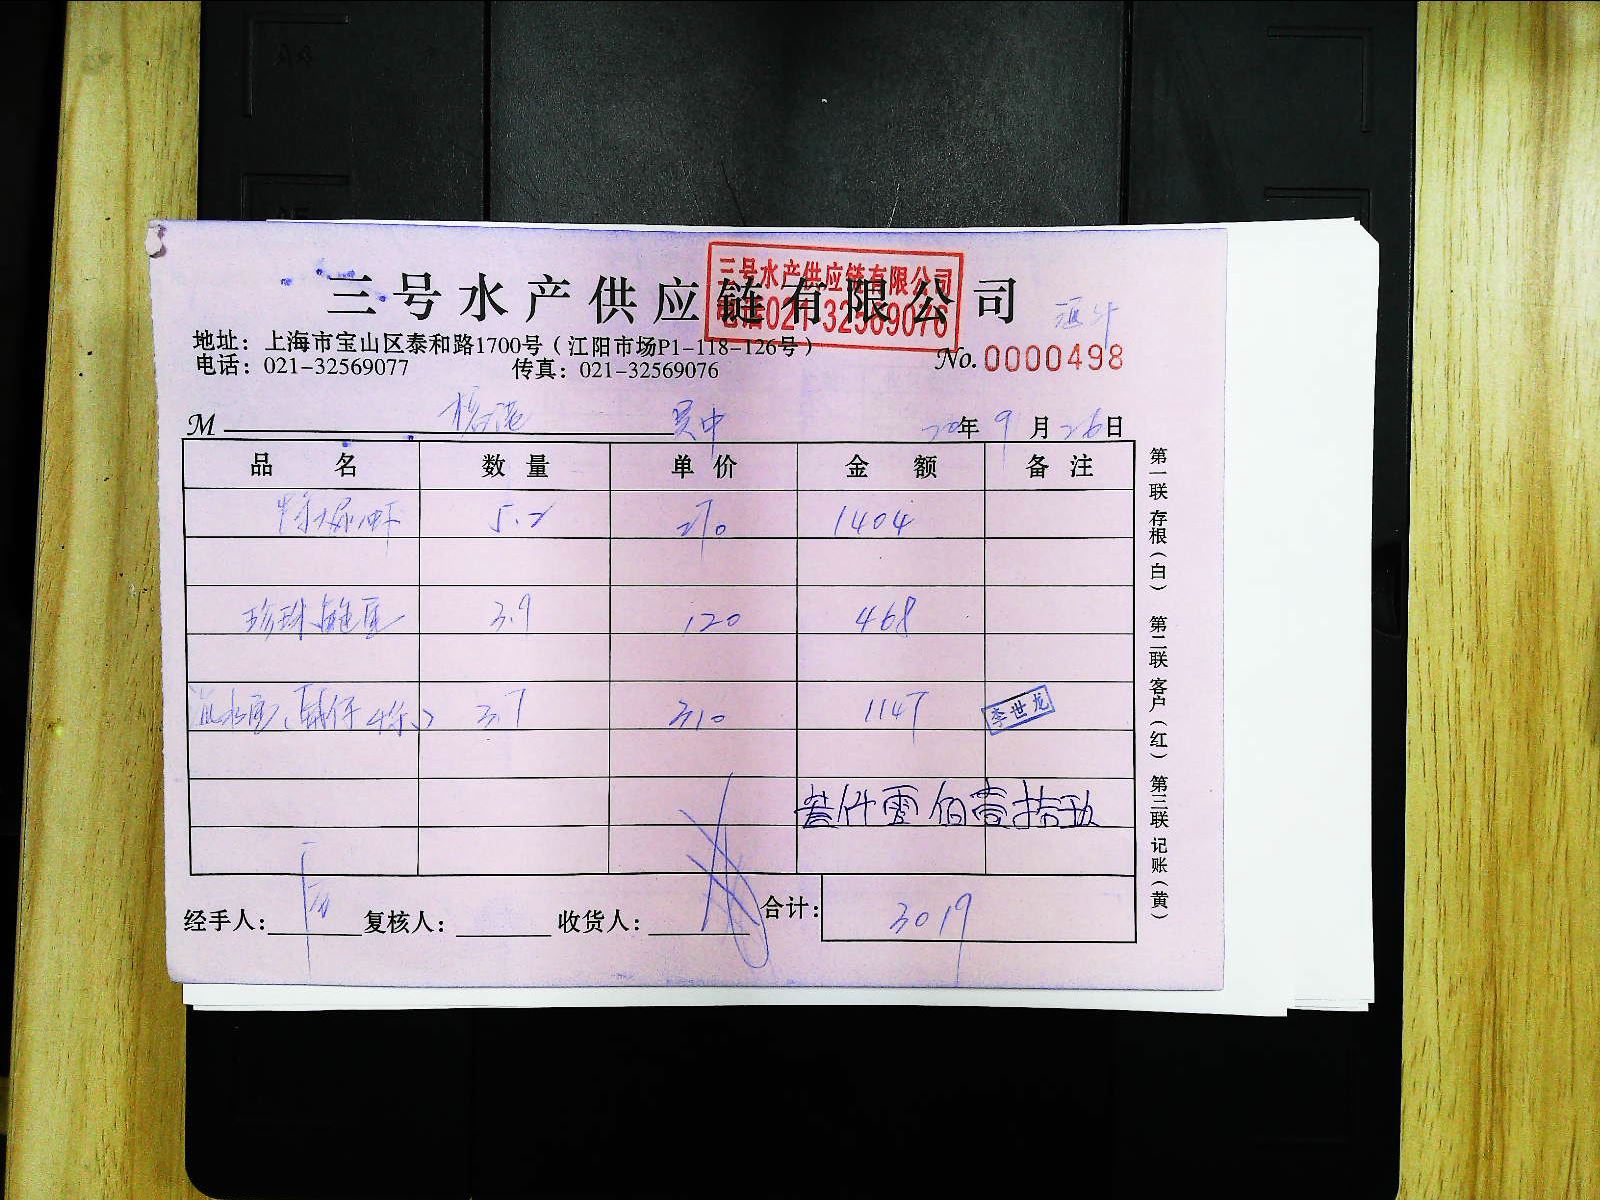 三号水产供应链有限公司
三号水产供应链有限公司
电话021-32569076
地址：上海市宝山区泰和路1700号（江阳市场P1-118-126号）
电话：021-32569077 传真：021-32569076
No.0000498
M 吴中 20年9月26日
品名 数量 单价 金额 备注
5.2 270 1404
珍珠鲍 3.9 120 468
3.7 310 1147
李世龙
叁仟零佰壹拾玖
经手人： 复核人： 收货人： 合计： 3019
第一联 存根（白） 第二联 客户（红） 第三联 记账（黄）